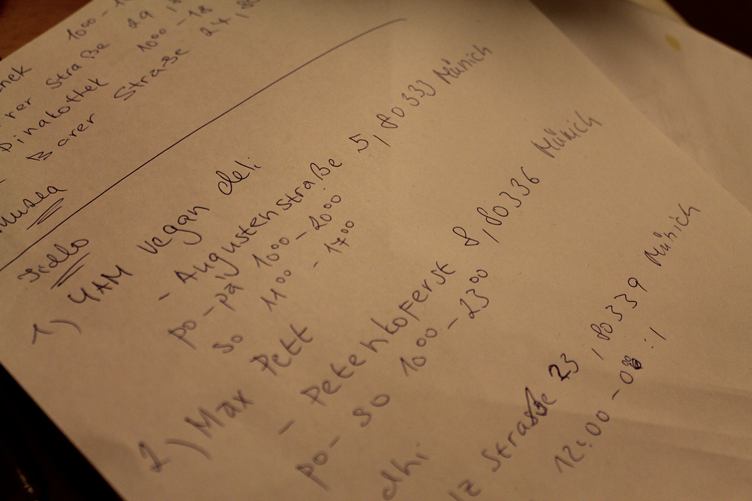 1000-1
Straße 29
Pinakothek 1000-18
- Barer Straße 27,
Musea
Jedlo
1) YAM vegan deli
- Augustenstraße 5, 80333 Münich
po-pa 1000-2000
so 1100-1700
2) Max Pett
- Petenkoferst 8, 80336 Münich
po-so 1000-2300
elhi
lz Straße 23, 80339 Münich
12:00-